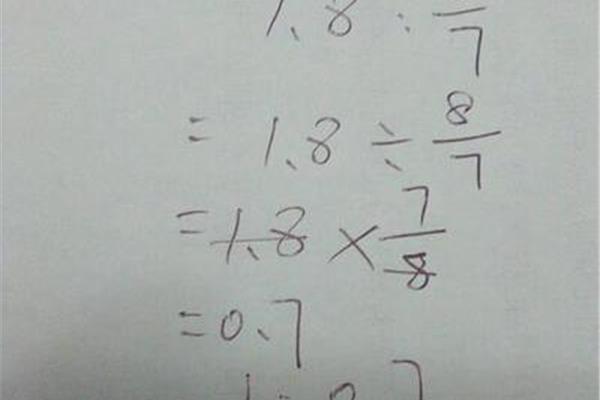 1.8 : —/7
= 1.8 ÷ 8/7
= 1.8 × 7/8
= 0.7